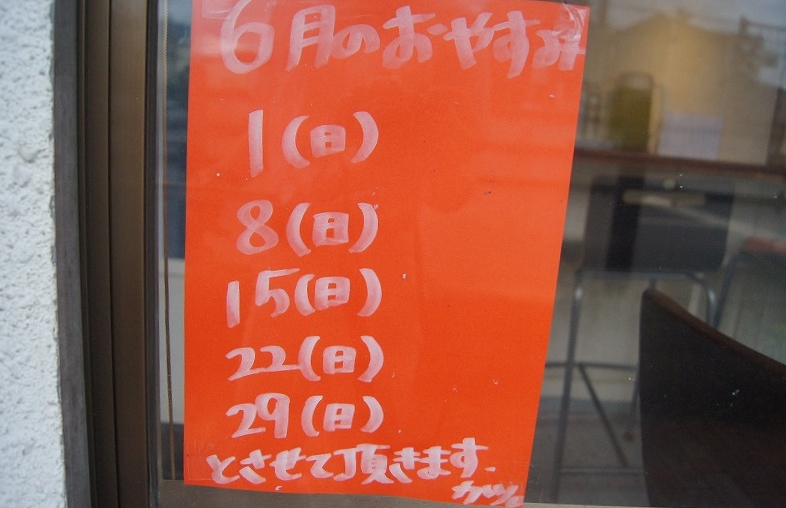 6月のおやすみ
1(日)
8(日)
15(日)
22(日)
29(日)
とさせて頂きます.